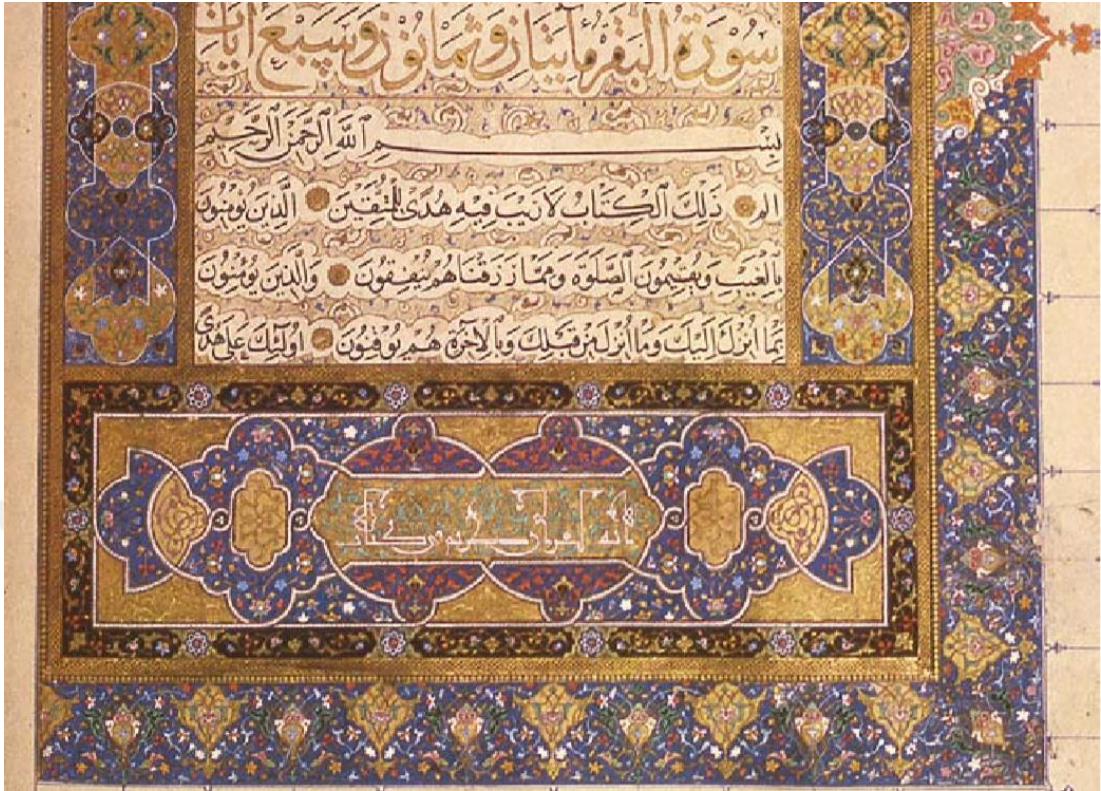 سورة البقرة مايتان وثمانون وسبع آيات
بسم الله الرحمن الرحيم
الم ذلك الكتاب لا ريب فيه هدى للمتقين الذين يؤمنون
بالغيب ويقيمون الصلوة ومما رزقناهم ينفقون والذين يؤمنون
بما انزل اليك وما انزل من قبلك وبالآخرة هم يوقنون اولئك على هدى
انه لقرآن كريم فى كتاب